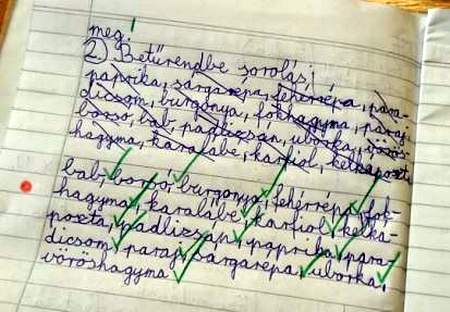 meg.
2) Betűrendbe sorolás!
paprika, sárgarépa, fehérrépa, para-
dicsom, burgonya, fokhagyma, paraj,
borsó, bab, padlizsán, uborka, vörös-
hagyma, karalábé, karfiol, kelkáposzta
bab, borsó, burgonya, fehérrépa, fok-
hagyma, karalábé, karfiol, kelká-
poszta, padlizsán, paprika, para-
dicsom, paraj, sárgarépa, uborka,
vöröshagyma